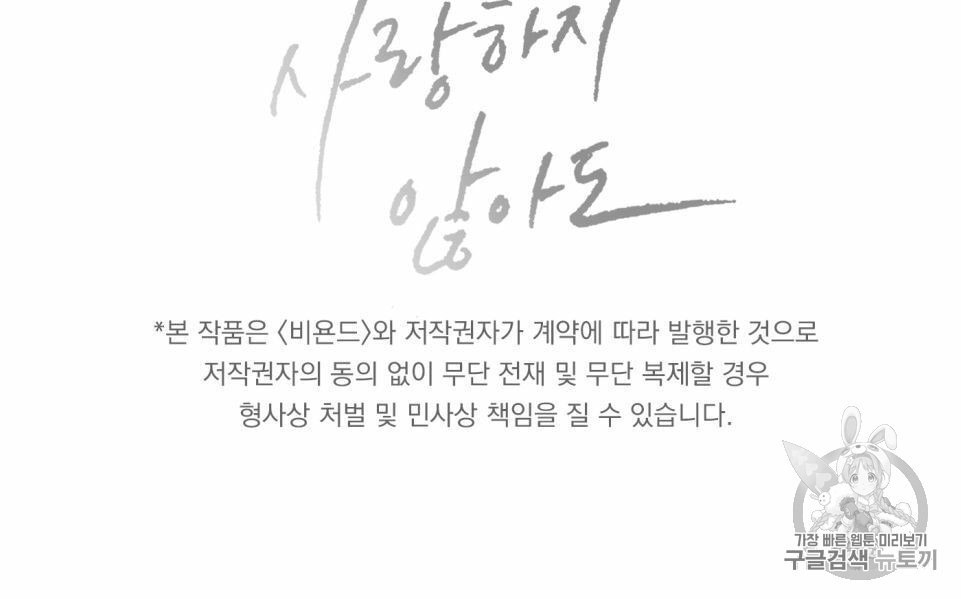 사랑하지
않아도
*본 작품은 〈비욘드〉와 저작권자가 계약에 따라 발행한 것으로
저작권자의 동의 없이 무단 전재 및 무단 복제할 경우
형사상 처벌 및 민사상 책임을 질 수 있습니다.
가장 빠른 웹툰 미리보기
구글검색 뉴토끼